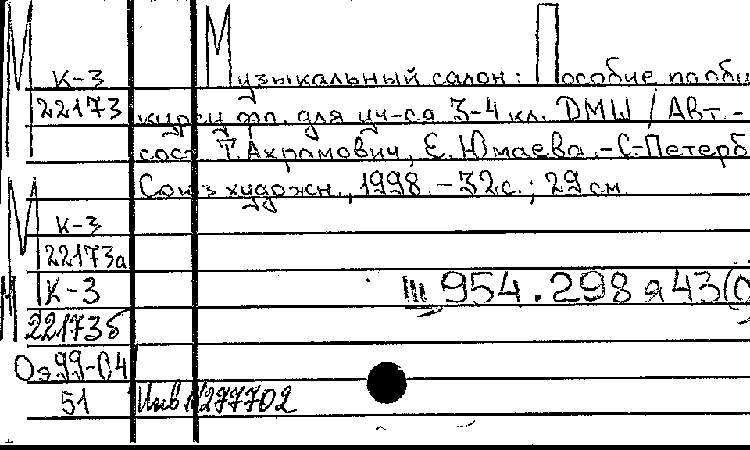 М К-3 Музыкальный салон: Пособие по общ
22173 курсу фп. для уч-ся 3-4 кл. ДМШ / Авт.-
сост Т. Ахрамович, Е. Юмаева. - С-Петерб
Союз художн., 1998. - 32 с.; 29 см
М К-3
22173а
М К-3 Ш 954.298 я 43(0
22173б
Оэ99-04
51 Инв №277702